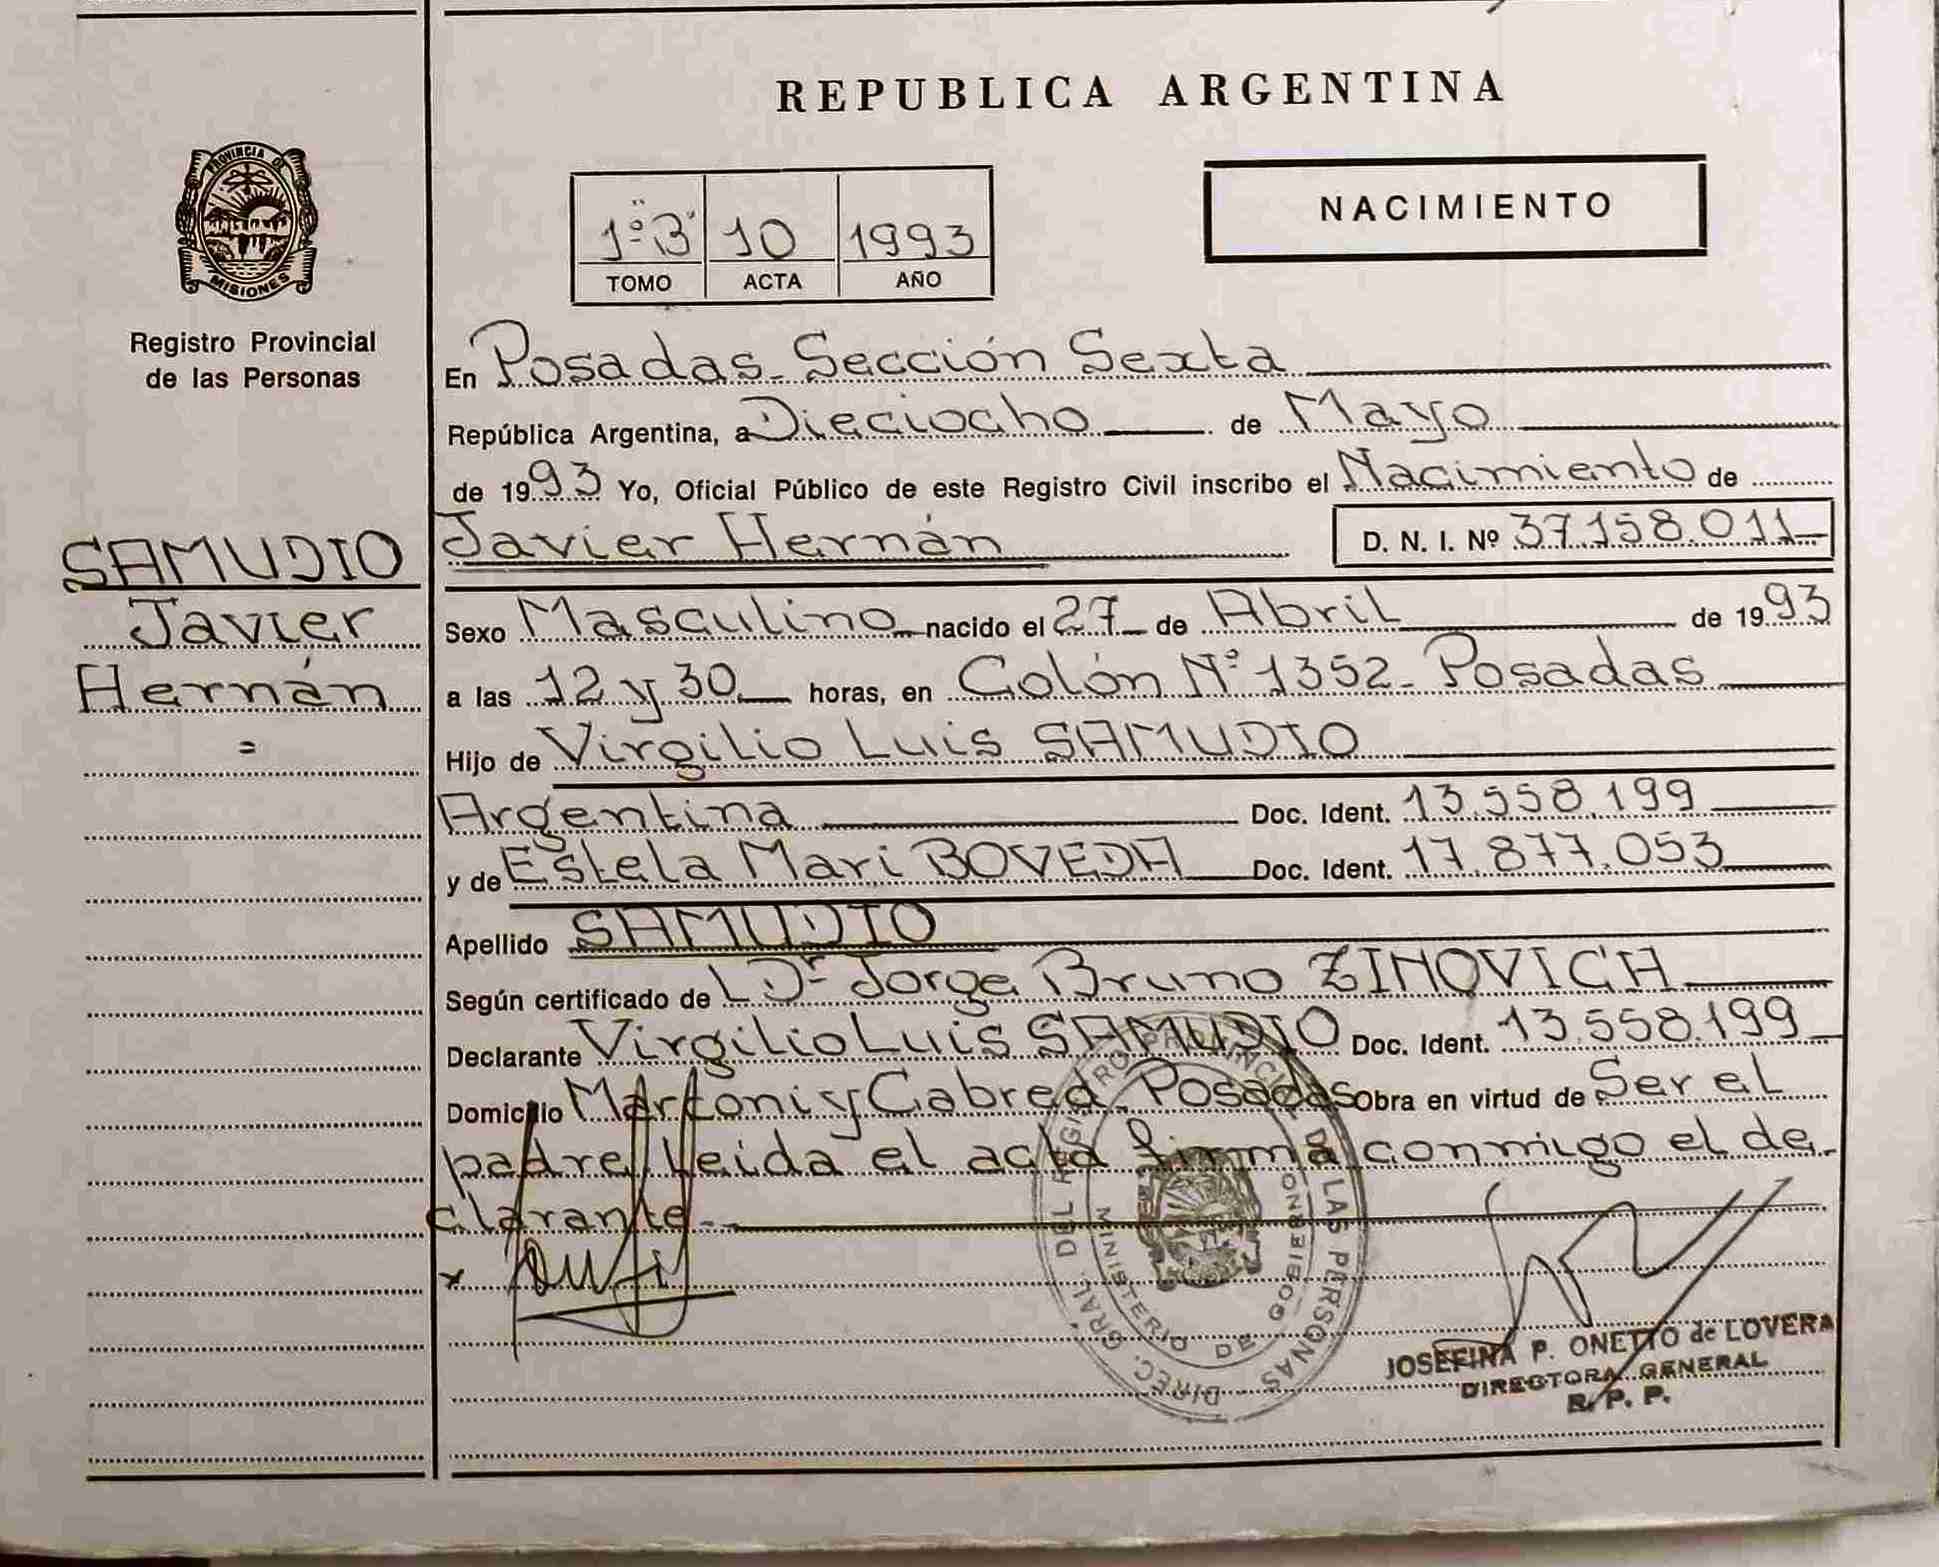 REPUBLICA ARGENTINA
PROVINCIA DE
MISIONES
Registro Provincial
de las Personas
SAMUDIO
Javier
Hernán
=
1º "B" 10 1993
TOMO ACTA AÑO
NACIMIENTO
En Posadas Sección Sexta
República Argentina, a Dieciocho de Mayo
de 1993 Yo, Oficial Público de este Registro Civil inscribo el Nacimiento de
Javier Hernán D. N. I. Nº 37.158.011
Sexo Masculino nacido el 27 de Abril de 1993
a las 12 y 30 horas, en Colón Nº 1352 - Posadas
Hijo de Virgilio Luis SAMUDIO
Argentina Doc. Ident. 13.558.199
y de Estela Mari BOVEDA Doc. Ident. 17.877.053
Apellido SAMUDIO
Según certificado de L Dr Jorge Bruno ZINOVICH
Declarante Virgilio Luis SAMUDIO Doc. Ident. 13.558.199
Domicilio y Cabred - Posadas Obra en virtud de Ser el
padre Leida el acta firma conmigo el de-
clarante-
x
DIREC. GRAL. DEL REGISTRO PROVINCIAL DE LAS PERSONAS
MINISTERIO DE GOBIERNO
JOSEFINA P. ONETTO de LOVERA
DIRECTORA GENERAL
R. P. P.